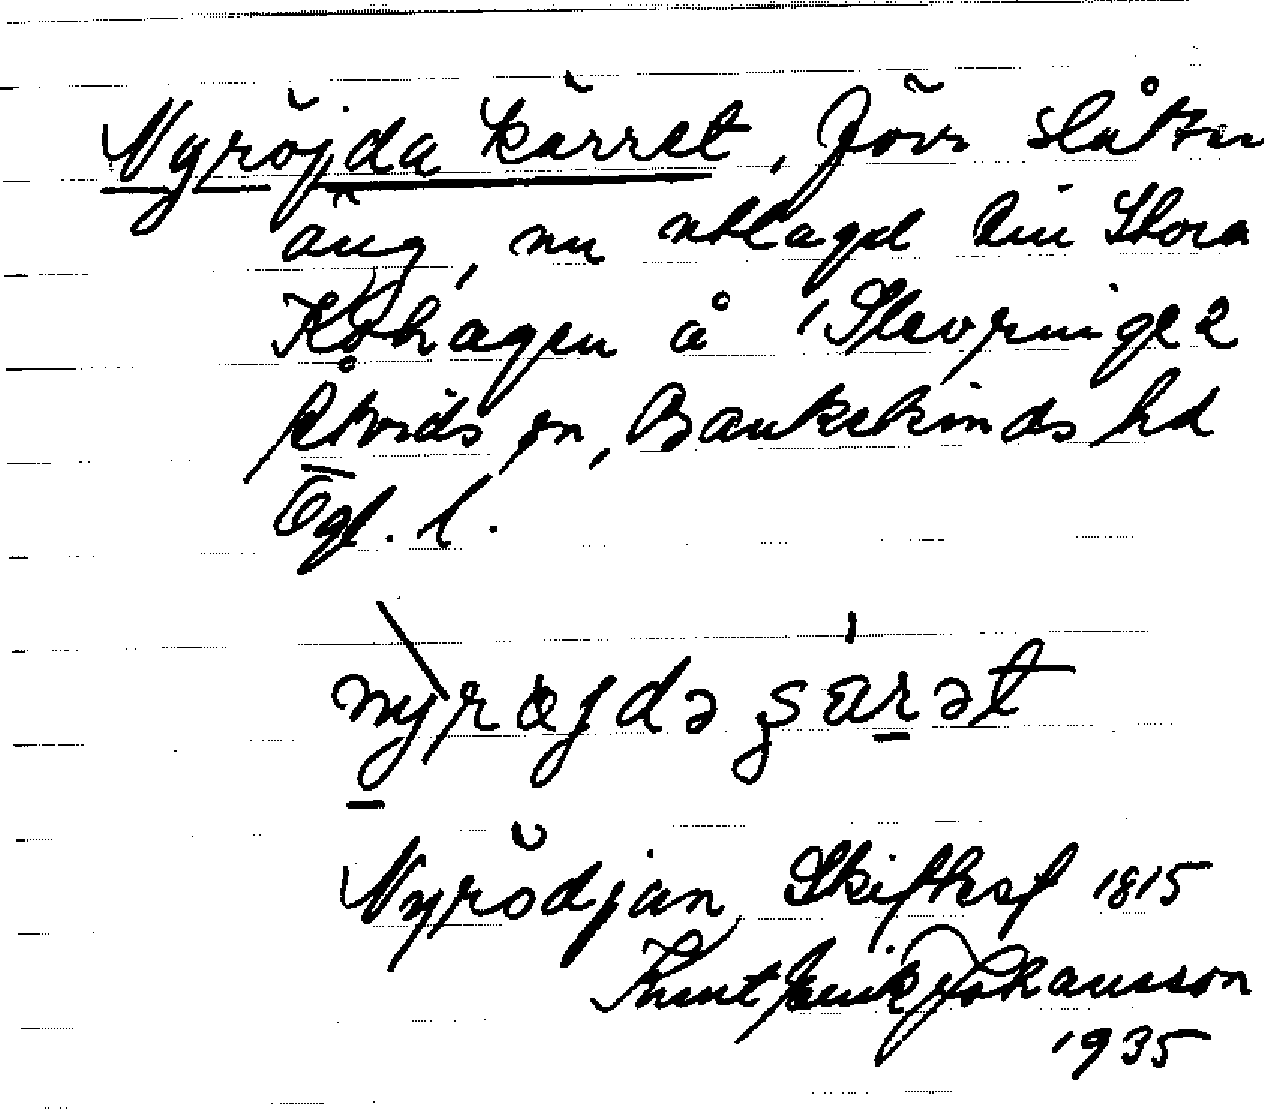 Nyröjda kärret, förr slåtter
äng, nu utlagd till Stora
Kohagen å Slevringe 2
Åtvids sn, Bankekinds hd
Ögl. l.
Nyrödjan Skifteskf 1815
Knut Erik Johansson
1935